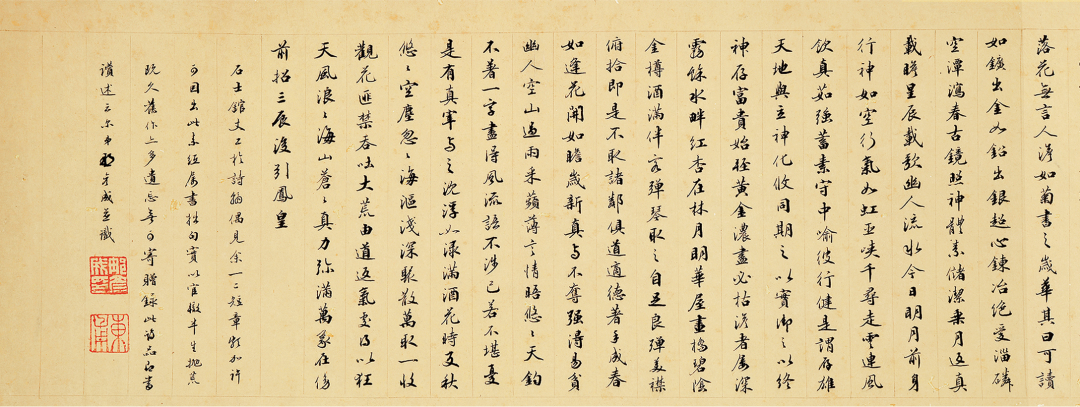 落花無言人淡如菊書之歲華其曰可讀
如鑛出金如鉛出銀超心鍊冶絕愛淄磷
空潭瀉春古鏡照神體素儲潔乘月返真
載瞻星辰載歌幽人流水今日明月前身
行神如空行氣如虹巫峽千尋走雲連風
飲真茹強蓄素守中喻彼行健是謂存雄
天地與立神化攸同期之以實御之以終
神存富貴始輕黃金濃盡必枯淡者屢深
霧餘水畔紅杏在林月明華屋畫橋碧陰
金樽酒滿伴客彈琴取之自足良殫美襟
俯拾即是不取諸鄰俱道適往著手成春
如逢花開如瞻歲新真与不奪強得易貧
幽人空山過雨采蘋薄言情晤悠〻天鈞
不著一字盡得風流語不涉己若不堪憂
是有真宰与之沈浮如淥滿酒花時反秋
悠〻空塵忽〻海漚淺深聚散萬取一收
觀花匪禁吞吐大荒由道返氣處得以狂
天風浪〻海山蒼〻真力弥滿萬象在傍
前招三辰後引鳳皇
石士館丈工於詩翰偶見余一二短章 加許
可因出此 屬書拙句實以官 半生拋荒
既久舊作亦多遺忘 可寄贈錄此詩品 書
讚述云尔 成並識